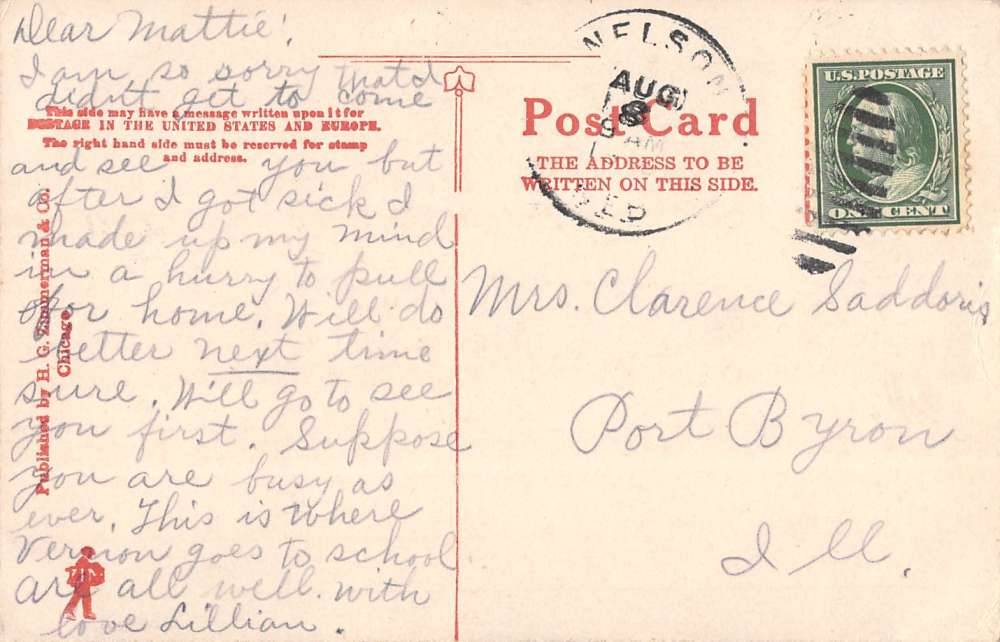 Dear Mattie!
I am so sorry that I
didn't get to come
and see you but
after I got sick I
made up my mind
in a hurry to pull
for home. Will do
better next time
sure. Will go to see
you first. Suppose
you are busy as
ever. This is where
Vernon goes to school
are all well. with
love Lillian.
This side may have a message written upon it for
POSTAGE IN THE UNITED STATES AND EUROPE.
The right hand side must be reserved for stamp
and address.
Published by H. G. Zimmerman & Co.
Chicago
ZIM
Post Card
THE ADDRESS TO BE
WRITTEN ON THIS SIDE.
NELSON
AUG
AM
NEB
U.S. POSTAGE
ONE CENT
Mrs. Clarence Saddoris
Port Byron
Ill.